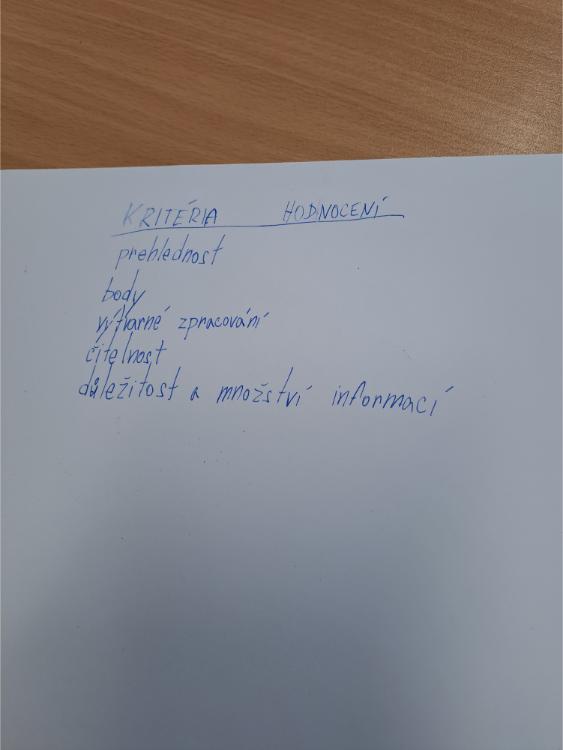 KRITÉRIA HODNOCENÍ
prehlednost
body
výtvarné zpracování
čitelnost
důležitost a množství informací